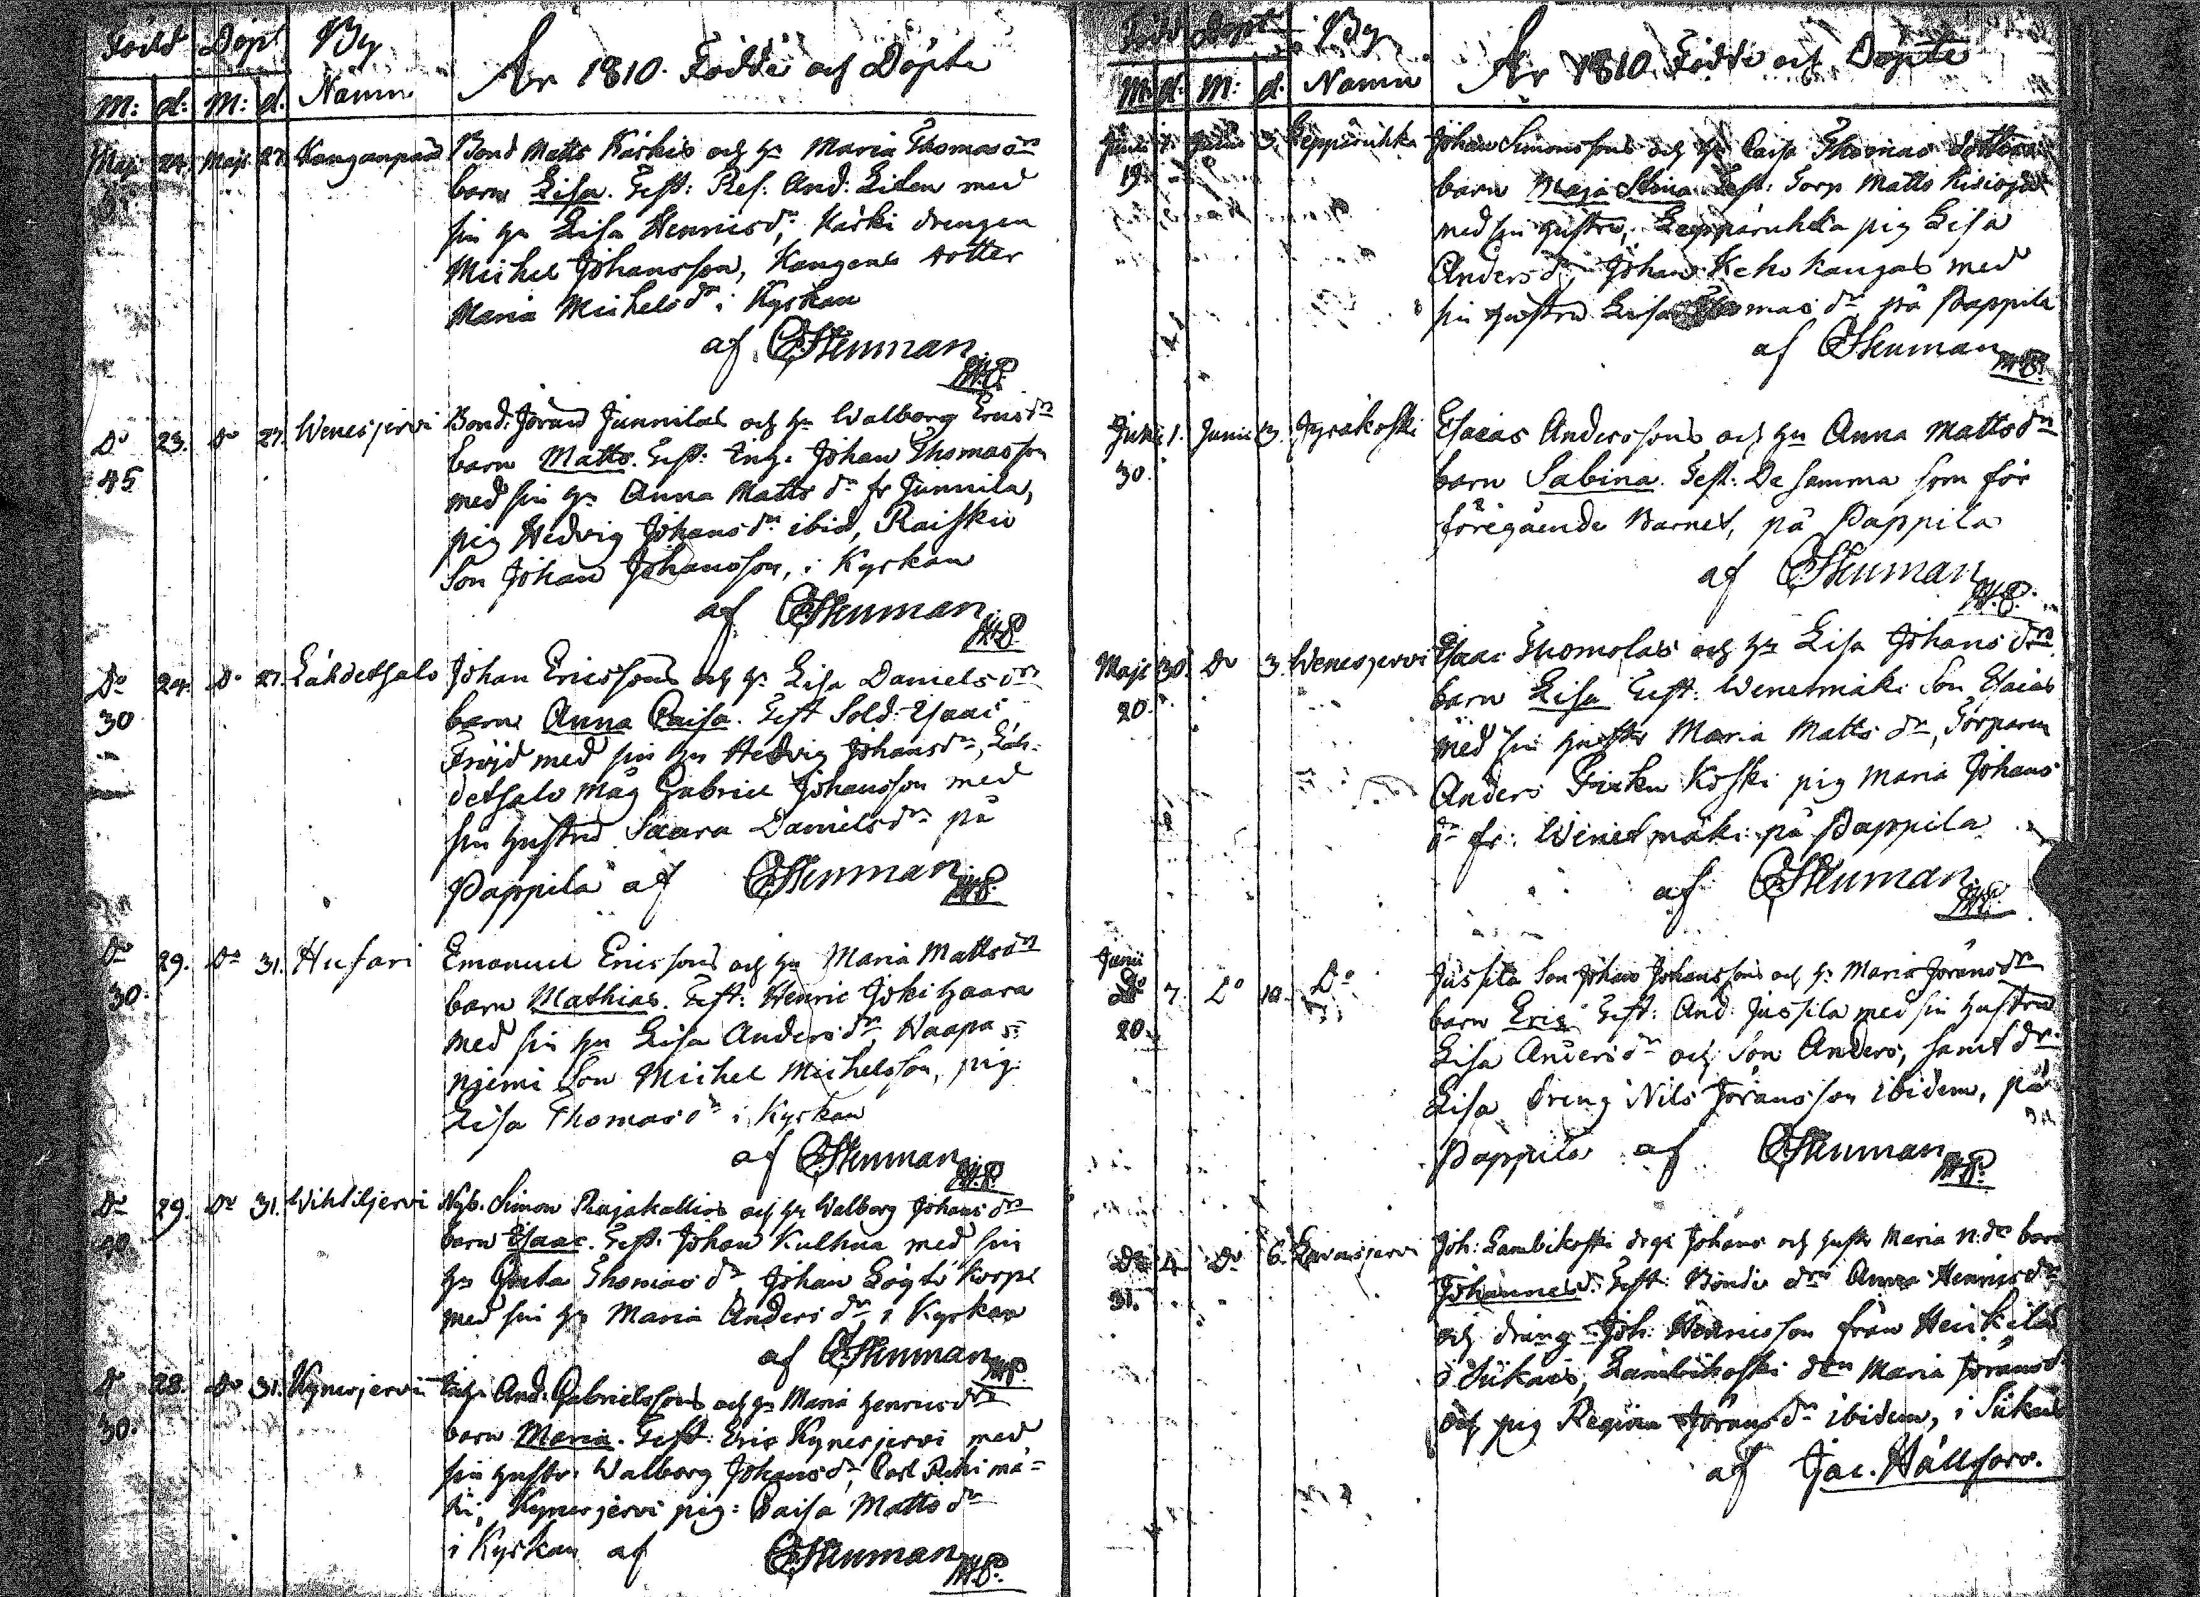 Född Döpt By
M: d: M: d. Namn
År 1810. Födde och Döpte
Maji 24. Maji 27. Kanganpää Bond Matts Kärkis och hu Maria Thomasdrs
barn Lisa. Test: Ref: And: Liten med
sin hu Lisa Henricsdr, Kärki drengen
Michel Johansson, Kangas dotter
Maria Michelsdr i Kyrkan
af CHeuman
M.P.
Do 23. Do 27. Wenesjervi Bond: Jöran Junnilas och hu Walborg Ericsdrs
45 barn Matts. Test: Ing. Johan Thomasson
med sin hu Anna Mattsdr fr Junnila,
pig Hedvig Johansdr ibid, Raisku
Son Johan Johansson, i Kyrkan
af CHeuman
M.P.
Do 24. Do 27. Lähdetsalo Johan Ericssons och hu Lisa Danielsdrs
30 barn Anna Caisa. Test Sold: Isaac
Fröjd med sin hu Hedvig Johansdr, Läh-
detsalo måg Gabriel Johansson med
sin hustru Saara Danielsdr på
Pappila af CHeuman
M.P.
Do 29. Do 31. Hufari Emanuel Ericssons och hu Maria Mattsdrs
30. barn Mathias. Test: Henric Jokihaara
med sin hu Lisa Andersdr, Haapa-
njemi Son Michel Michelsson, pig
Lisa Thomasdr i Kyrkan
af CHeuman
M.P.
Do 29. Do 31. Wihtiljervi Nyb. Simon Rajakallios och hu Walborg Johansdrs
40 barn Isaac. Test: Johan Kulhua med sin
hu Greta Thomasdr Johan Lögtökorpi
med sin hu Maria Andersdr, i Kyrkan
af CHeuman
M.P.
Do 28. Do 31. Kynesjervi And: Gabrielssons och hu Maria Henricsdrs
30. barn Maria. Test: Eric Kynesjervi med
sin hustr: Walborg Johansdr, Carl Rihimä-
ki, Kynesjervi pig: Caisa Mattsdr
i Kyrkan af CHeuman
M.P.
Född Döpt By
M: d: M: d: Namn
År 1810. Födde och Döpte
Junii 1. Junii 3. Leppäruhka Johan Simonssons och hu Caisa Thomas dotters
19 barn Maja Stina Test: Torp Matts
med sin hustru, Leppäruhka pig Lisa
Andersdr, Johan Kehokangas med
sin hustru Lisa Thomasdr på Pappila
af CHeuman
M.P.
Junii 1. Junii 3. Jyräkoski Esaias Anderssons och hu Anna Mattsdrs
30. barn Sabina. Test: De samma som för
föregående Barnet, på Pappila
af CHeuman
M.P.
Maji 30. Do 3. Wenesjervi Isaac Thomolas och hu Lisa Johansdrs
20. barn Lisa Test: Wenetmäki Son Esaias
med sin hustru Maria Mattsdr, Torparen
Anders koski pig Maria Johans
dr fr: Winetmäki på Pappila
af CHeuman
M.P.
Junii
Do 7. Do 10. Do Jussila Son Johan Johanssons och hu Maria Jöransdrs
20. barn Eric Test: And: Jussila med sin hustru
Lisa Andersdr och Son Anders, samt dr
Lisa Dreng Nils Jöransson ibidem, på
Pappila af CHeuman
M.P.
Do 4. Do 6. Lavasjervi Joh: Lambikoski drgs Johans och hustr Maria n:dr barn
31. Johannes. Test: Bonde dr Anna Henricsdr
och dräng Joh: Henricsson från Heikilä
i Sükais, Lambikoski drn Maria Jöransdr
och pig Regina Jöransdr ibidem, i Sükais
af Jac. Hällfors.